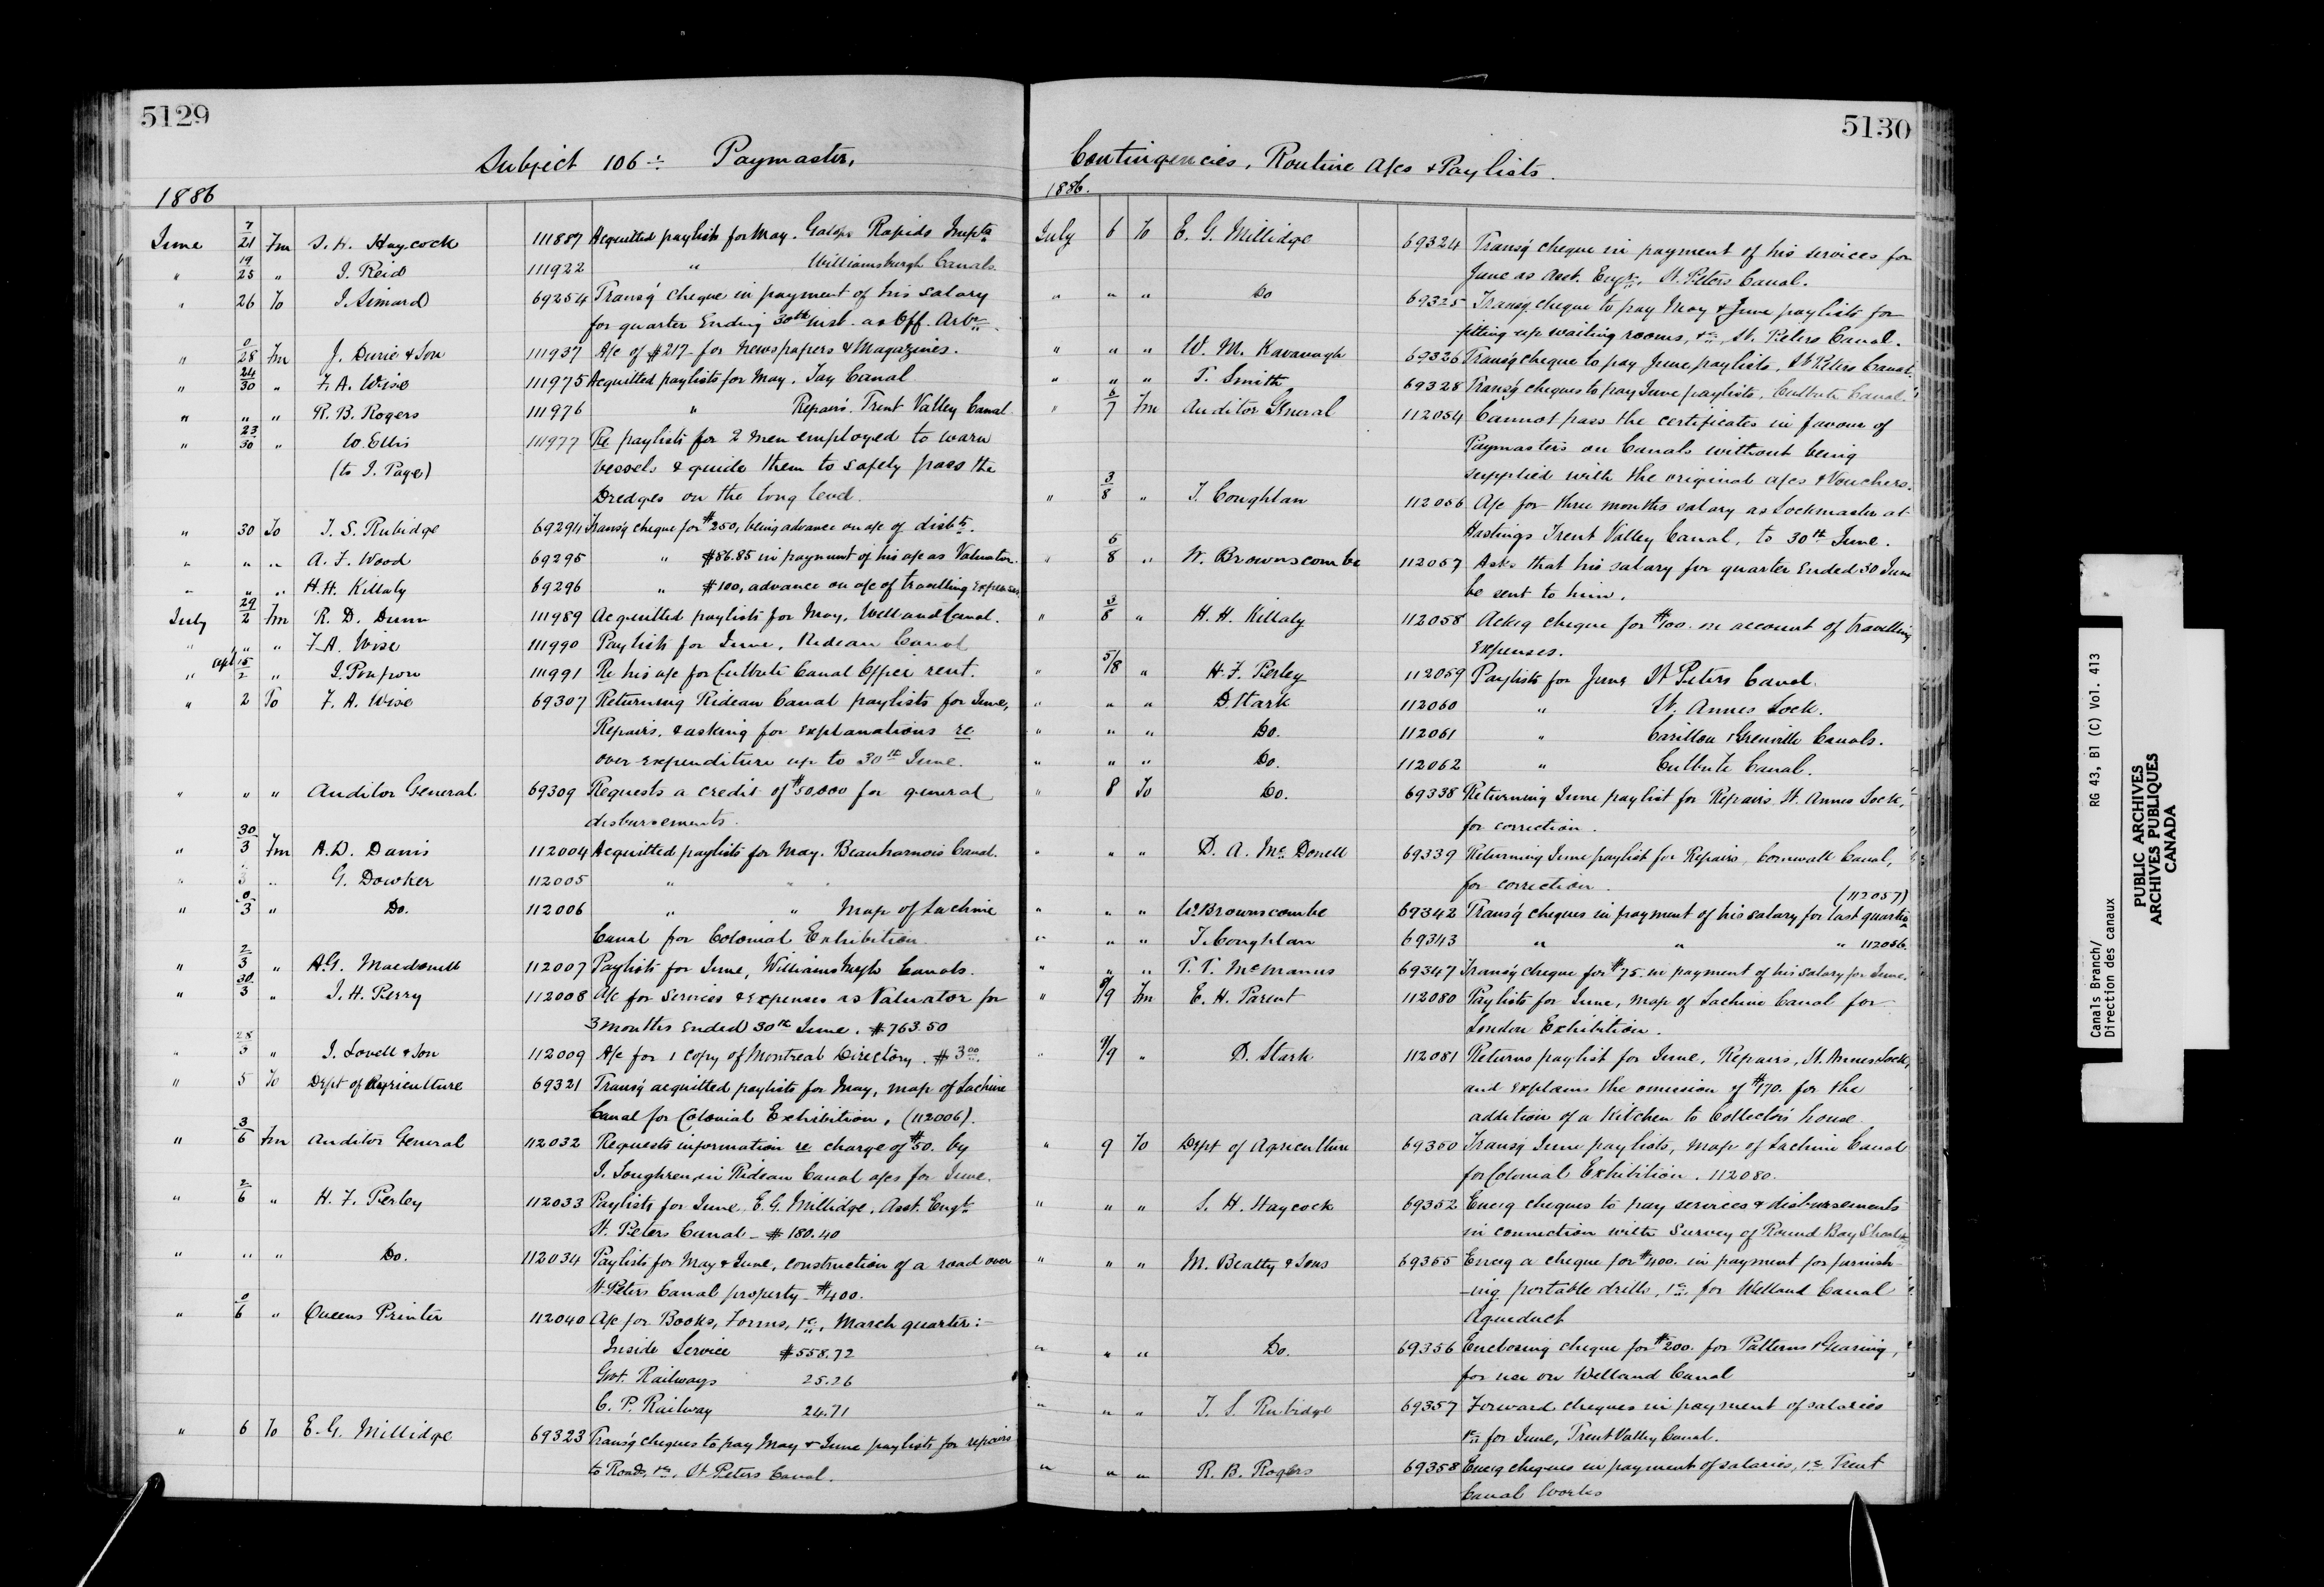 5129
Subject 106:- Paymaster,
1886
June 7/21 Fm S. H. Haycock 111887 Acquitted paylists for May. Galops Rapids Impts
" 19/25 " J. Reid 111922 " Williamsburgh Canals.
" 26 To J. Simard 69254 Transg cheque in payment of his salary
for quarter Ending 30th inst. as Off. Arbr.
" 0/28 Fm J. Durie & Son 111937 A/c of $217 for Newspapers & Magazines.
" 24/30 " F. A. Wise 111975 Acquitted paylists for May. Tay Canal
" " " R. B. Rogers 111976 " Repairs. Trent Valley Canal
" 23/30 " W. Ellis 111977 Re paylists for 2 men employed to warn
(to J. Page) vessels & guide them to safely pass the
Dredges on the long level.
" 30 To T. S. Rubidge 69294 Transg cheque for $250, being advance on a/c of disbts.
" " " A. F. Wood 69295 " $86.85 in payment of his a/c as Valuator.
" " " H. H. Killaly 69296 " $100, advance on a/c of travelling expenses
July 29/2 Fm R. D. Dunn 111989 Acquitted paylists for May, Welland Canal.
" " " F. A. Wise 111990 Paylists for June, Rideau Canal
" apl 15/2 " J. Poupore 111991 Re his a/c for Culbute Canal Office rent.
" 2 To F. A. Wise 69307 Returning Rideau Canal paylists for June,
Repairs, & asking for explanations re
over-expenditure up to 30th June.
" " " Auditor General 69309 Requests a credit of $50,000 for general
disbursements.
" 30/3 Fm A. D. Danis 112004 Acquitted paylists for May. Beauharnois Canal.
" 3 " G. Dowker 112005 " " "
" 0/3 " Do. 112006 " " Map of Lachine
Canal for Colonial Exhibition.
" 2/3 " A. G. Macdonell 112007 Paylists for June, Williamsburgh Canals.
" 30/3 " J. H. Perry 112008 A/c for Services & expenses as Valuator for
3 months ended 30th June. $763.50
" 28/3 " J. Lovell & Son 112009 A/c for 1 copy of Montreal Directory. $3.00.
" 5 To Dept of Agriculture 69321 Transg acquitted paylists for May, map of Lachine
Canal for Colonial Exhibition, (112006).
" 3/6 Fm Auditor General 112032 Requests information re charge of $50. by
J. Loughren, in Rideau Canal a/cs for June.
" 2/6 " H. F. Perley 112033 Paylists for June, E. G. Millidge, Asst. Engr.
St. Peters Canal - $180.40
" " " Do. 112034 Paylists for May & June, construction of a road over
St. Peters Canal property - $400.
" 0/6 " Queens Printer 112040 A/c for Books, Forms, &c., March quarter:-
Inside Service $558.72
Govt. Railways 25.26
C. P. Railway 24.71
" 6 To E. G. Millidge 69323 Transg cheques to pay May & June paylists for repairs
to Roads, &c., St. Peters Canal.
5130
Contingencies, Routine A/cs & Paylists.
1886.
July 6 To E. G. Millidge 69324 Transg cheque in payment of his services for
June as Asst. Engr., St. Peters Canal.
" " " Do 69325 Transg cheque to pay May & June paylists for
fitting up waiting rooms, &c., St. Peters Canal.
" " " W. M. Kavanagh 69326 Transg cheque to pay June paylists, St Peters Canal.
" " " T. Smith 69328 Transg cheques to pay June paylists. Culbute Canal.
" 6/7 Fm Auditor General 112054 Cannot pass the certificates in favour of
Paymasters on Canals without being
supplied with the original a/cs & Vouchers.
" 3/8 " T. Coughlan 112056 A/c for three months salary as Lockmaster at
Hastings Trent Valley Canal, to 30th June.
" 6/8 " W. Brownscombe 112057 Asks that his salary for quarter ended 30 June
be sent to him.
" 3/8 " H. H. Killaly 112058 Ackg cheque for $100. on account of travelling
Expenses.
" 5/8 " H. F. Perley 112059 Paylists for June St Peters Canal.
" " " D. Stark 112060 " St. Annes Lock.
" " " Do. 112061 " Carillon & Grenville Canals.
" " " Do. 112062 " Culbute Canal.
" 8 To Do. 69338 Returning June paylist for Repairs, St. Annes Lock,
for correction.
" " " D. A. McDonell 69339 Returning June paylist for Repairs, Cornwall Canal,
for correction.
(112057)
" " " W. Brownscombe 69342 Transg cheques in payment of his salary for last quarter
" " " T. Coughlan 69343 " " " 112056.
" " " T. T. McManus 69347 Transg cheque for $75. in payment of his salary for June.
" 9/9 Fm E. H. Parent 112080 Paylists for June, map of Lachine Canal for
London Exhibition.
" 9/9 " D. Stark 112081 Returns paylist for June, Repairs, St. Annes Lock,
and explains the omission of $170. for the
addition of a kitchen to Collectors house.
" 9 To Dept of Agriculture 69350 Transg June paylists, map of Lachine Canal
for Colonial Exhibition. 112080.
" " " S. H. Haycock 69352 Encg cheques to pay services & disbursements
in connection with Survey of Round Bay Shoals
" " " M. Beatty & Sons 69355 Encg a cheque for $400. in payment for furnish-
-ing portable drills, &c. for Welland Canal
Aqueduct
" " " Do. 69356 Enclosing cheque for $200. for Patterns & Gearing,
for use on Welland Canal
" " " T. S. Rubidge 69357 Forward cheques in payment of salaries
&c. for June, Trent Valley Canal.
" " " R. B. Rogers 69358 Encg cheques in payment of salaries, &c Trent
Canal Works
Canals Branch/ RG 43, B1 (C) Vol. 413
Direction des canaux
PUBLIC ARCHIVES
ARCHIVES PUBLIQUES
CANADA